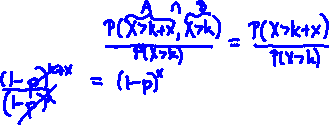 A ∩ B
P(X>k+x, X>k) / P(X>k) = P(X>k+x) / P(X>k)
(1-p)^k+x / (1-p)^k = (1-p)^x